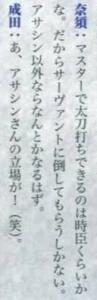 奈須：マスターで太刀打ちできるのは時臣くらいか
な。だからサーヴァントに倒してもらうしかない。
アサシン以外ならなんとかなるはず。
成田：あ、アサシンさんの立場が！（笑）。